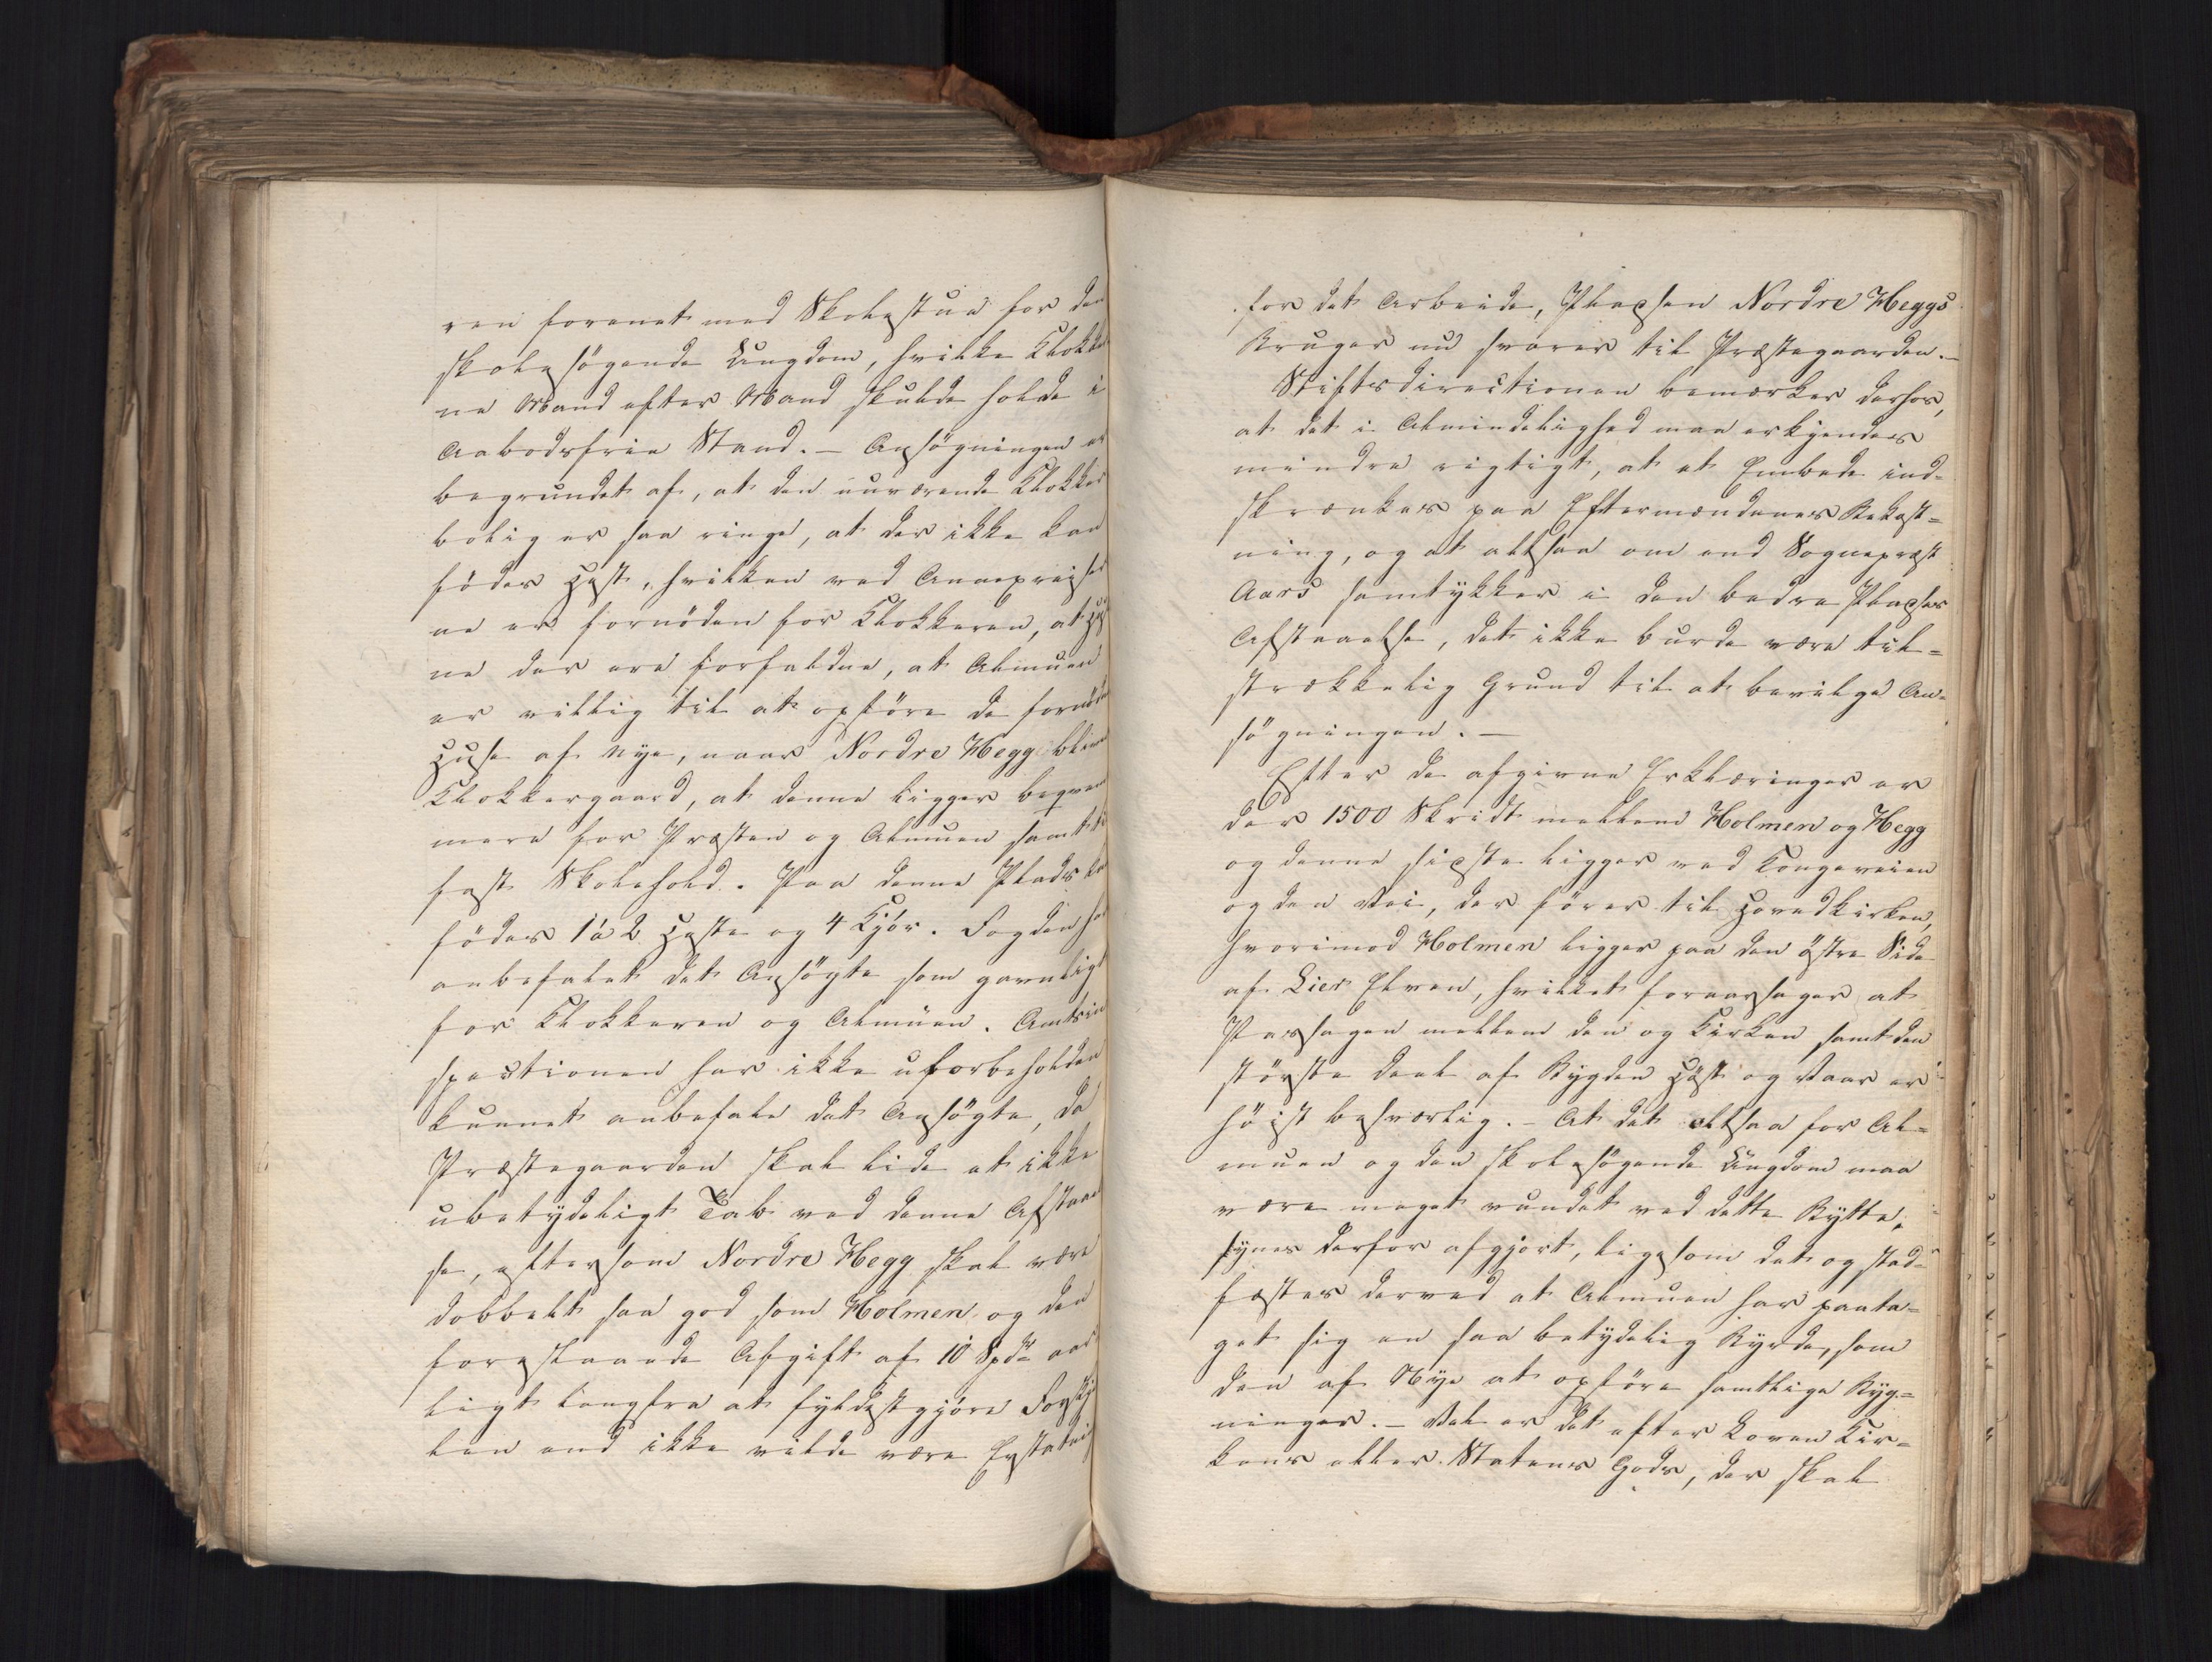 ren forenet med Skolestue for den
skolesøgende Ungdom, hvilke Klokker
ne Mand efter Mand skulde holde i
Aabodsfrie Stand. – Ansøgningen er
begrundet af, at den nuværende Klokker
bolig er saa ringe, at der ikke kan
födes Hest, hvilken ved Annexreiser
ne er fornöden for Klokkeren, at Huse
ne der ere forfaldne, at Almuen
er villig til at opföre de fornödne
Huse af Nye, naar Nordre Hegg bliver
Klokkergaard, at denne ligger beqvem
mere for Præsten og Almuen samt til
fast Skolehold. Paa denne Plads kan
födes 1 à 2 Heste og 4 Kjör. Fogden har
anbefalet det Ansögte som gavnligt
for Klokkeren og Almuen. Amtsin
spectionen har ikke uforbeholden
kunnet anbefale det Ansögte, da
Præstegaarden skal lide et ikke
ubetydeligt Tab ved denne Afstaael
se, eftersom Nordre Hegg skal være
dobbelt saa god som Holmen og den
forestaaende Afgift af 10 Spdr aar
ligt langtfra at fyldestgjöre Forskjel
len end ikke vilde være Erstatning
for det Arbeide, Pladsen Nordre Heggs
Bruger nu svarer til Præstegaarden. –
Stiftsdirectionen bemærker derhos,
at det i Almindelighed maa erkjendes
mindre rigtigt, at et Embede ind-
skrænkes paa Eftermændenes Bekost-
ning, og at altsaa om end Sognepræst
Aars samtykker i den bedre Pladses
Afstaaelse, det ikke burde være til-
strækkelig Grund til at bevilge An-
sögningen. –
Efter de afgivne Erklæringer er
der 1500 Skridt mellem Holmen og Hegg
og denne sidste ligger ved Kongeveien
og den Vei, der förer til Hovedkirken,
hvorimod Holmen ligger paa den östre Side
af Lier Elven, hvilket foraarsager at
Passagen mellem den og Kirken samt den
störste Deel af Bygden Höst og Vaar er
höist besværlig. – At det altsaa for Al-
muen og den skolesögende Ungdom maa
være meget vundet ved dette Bytte,
synes derfor afgjort, ligesom det og stad-
fæstes derved at Almuen har paata-
get sig en saa betydelig Byrde, som
den af Nye at opföre samtlige Byg-
ninger. – Vel er det efter Loven Kir-
kens eller Statens Gods, der skal